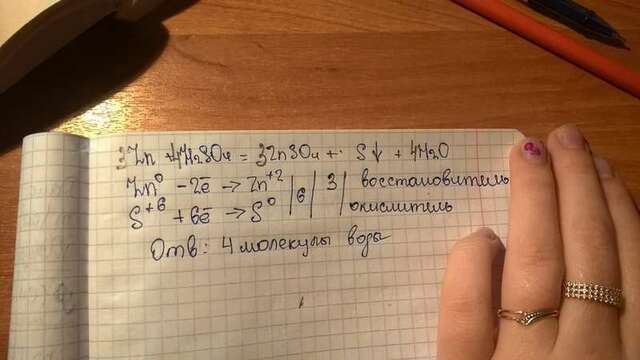 3Zn + 4H2SO4 = 3ZnSO4 + S↓ + 4H2O
Zn⁰ - 2ē → Zn⁺² | 6 | 3 | восстановитель
S⁺⁶ + 6ē → S⁰ | окислитель
Отв: 4 молекулы воды